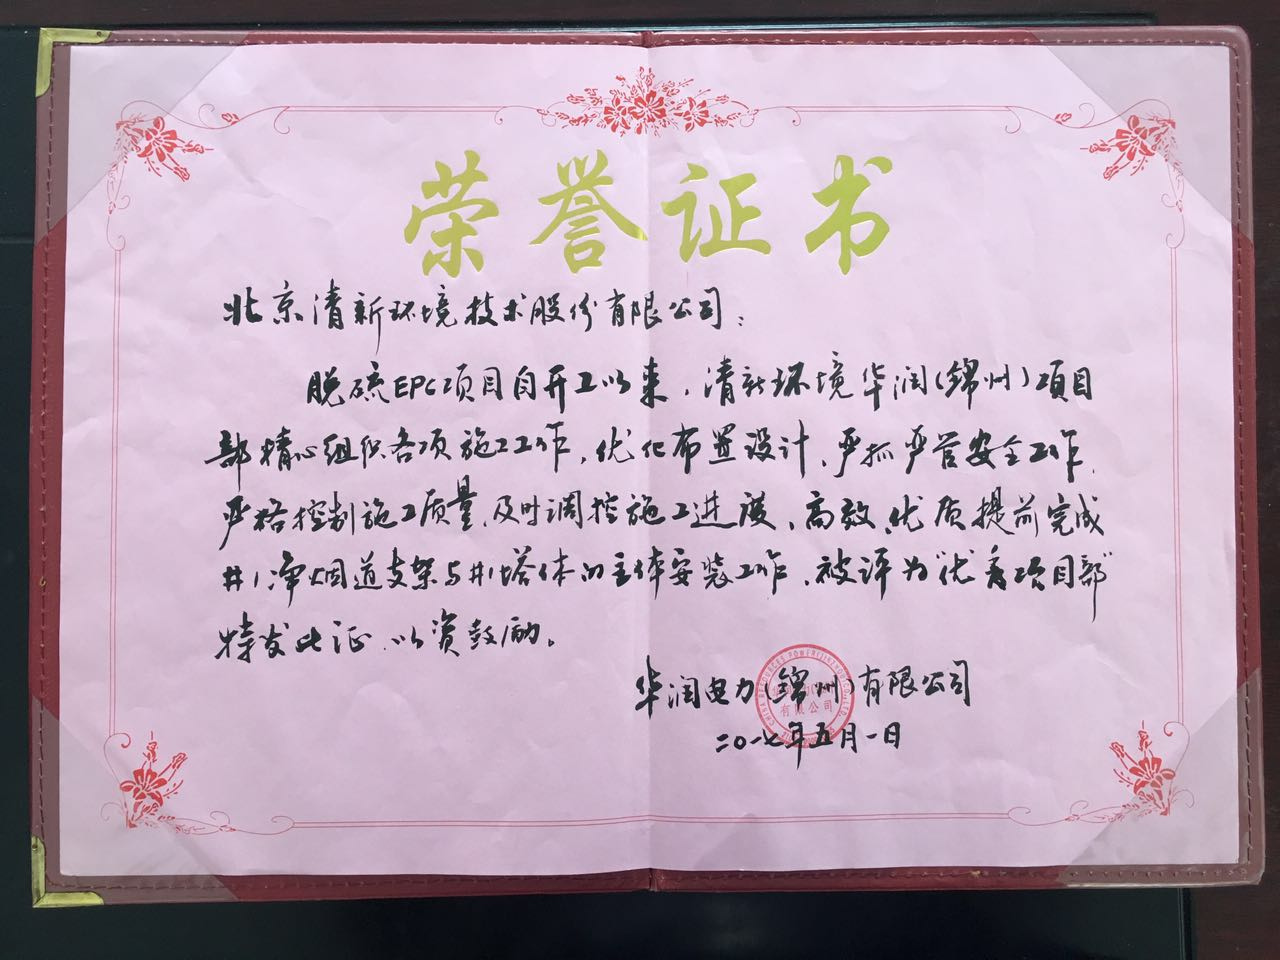 荣誉证书
北京清新环境技术股份有限公司：
脱硫EPC项目自开工以来，清新环境华润(锦州)项目
部精心组织各项施工工作，优化布置设计、严抓严管安全工作、
严格控制施工质量、及时调控施工进度、高效、优质提前完成
#1净烟道支架与#1塔体的主体安装工作，被评为“优秀项目部”
特发此证、以资鼓励。
华润电力(锦州)有限公司
二〇一七年五月一日
有限公司